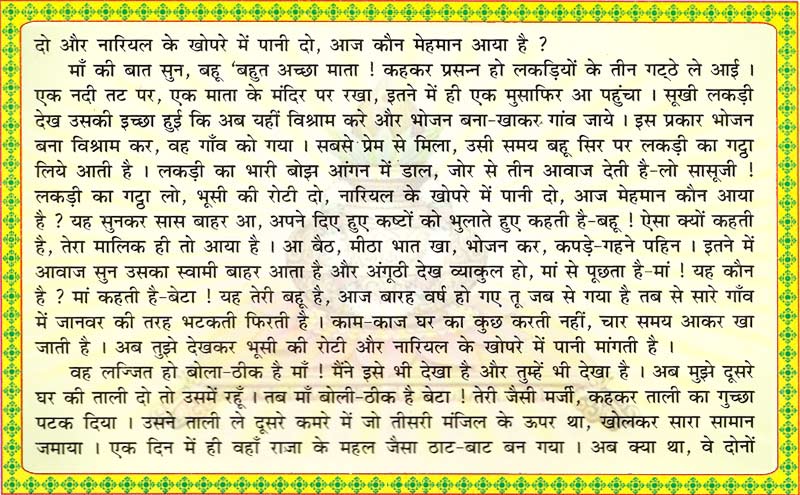 दो और नारियल के खोपरे में पानी दो, आज कौन मेहमान आया है ?
माँ की बात सुन, बहू ‘बहुत अच्छा माता ! कहकर प्रसन्न हो लकड़ियों के तीन गट्ठे ले आई ।
एक नदी तट पर, एक माता के मंदिर पर रखा, इतने में ही एक मुसाफिर आ पहुंचा । सूखी लकड़ी
देख उसकी इच्छा हुई कि अब यहीं विश्राम करे और भोजन बना-खाकर गांव जाये । इस प्रकार भोजन
बना विश्राम कर, वह गाँव को गया । सबसे प्रेम से मिला, उसी समय बहू सिर पर लकड़ी का गट्ठा
लिये आती है । लकड़ी का भारी बोझ आंगन में डाल, जोर से तीन आवाज देती है-लो सासूजी !
लकड़ी का गट्ठा लो, भूसी की रोटी दो, नारियल के खोपरे में पानी दो, आज मेहमान कौन आया
है ? यह सुनकर सास बाहर आ, अपने दिए हुए कष्टों को भुलाते हुए कहती है-बहू ! ऐसा क्यों कहती
है, तेरा मालिक ही तो आया है । आ बैठ, मीठा भात खा, भोजन कर, कपड़े-गहने पहिन । इतने में
आवाज सुन उसका स्वामी बाहर आता है और अंगूठी देख व्याकुल हो, मां से पूछता है-मां ! यह कौन
है ? मां कहती है-बेटा ! यह तेरी बहू है, आज बारह वर्ष हो गए तू जब से गया है तब से सारे गाँव
में जानवर की तरह भटकती फिरती है । काम-काज घर का कुछ करती नहीं, चार समय आकर खा
जाती है । अब तुझे देखकर भूसी की रोटी और नारियल के खोपरे में पानी मांगती है ।
वह लज्जित हो बोला-ठीक है माँ ! मैंने इसे भी देखा है और तुम्हें भी देखा है । अब मुझे दूसरे
घर की ताली दो तो उसमें रहूँ । तब माँ बोली-ठीक है बेटा ! तेरी जैसी मर्जी, कहकर ताली का गुच्छा
पटक दिया । उसने ताली ले दूसरे कमरे में जो तीसरी मंजिल के ऊपर था, खोलकर सारा सामान
जमाया । एक दिन में ही वहाँ राजा के महल जैसा ठाट-बाट बन गया । अब क्या था, वे दोनों